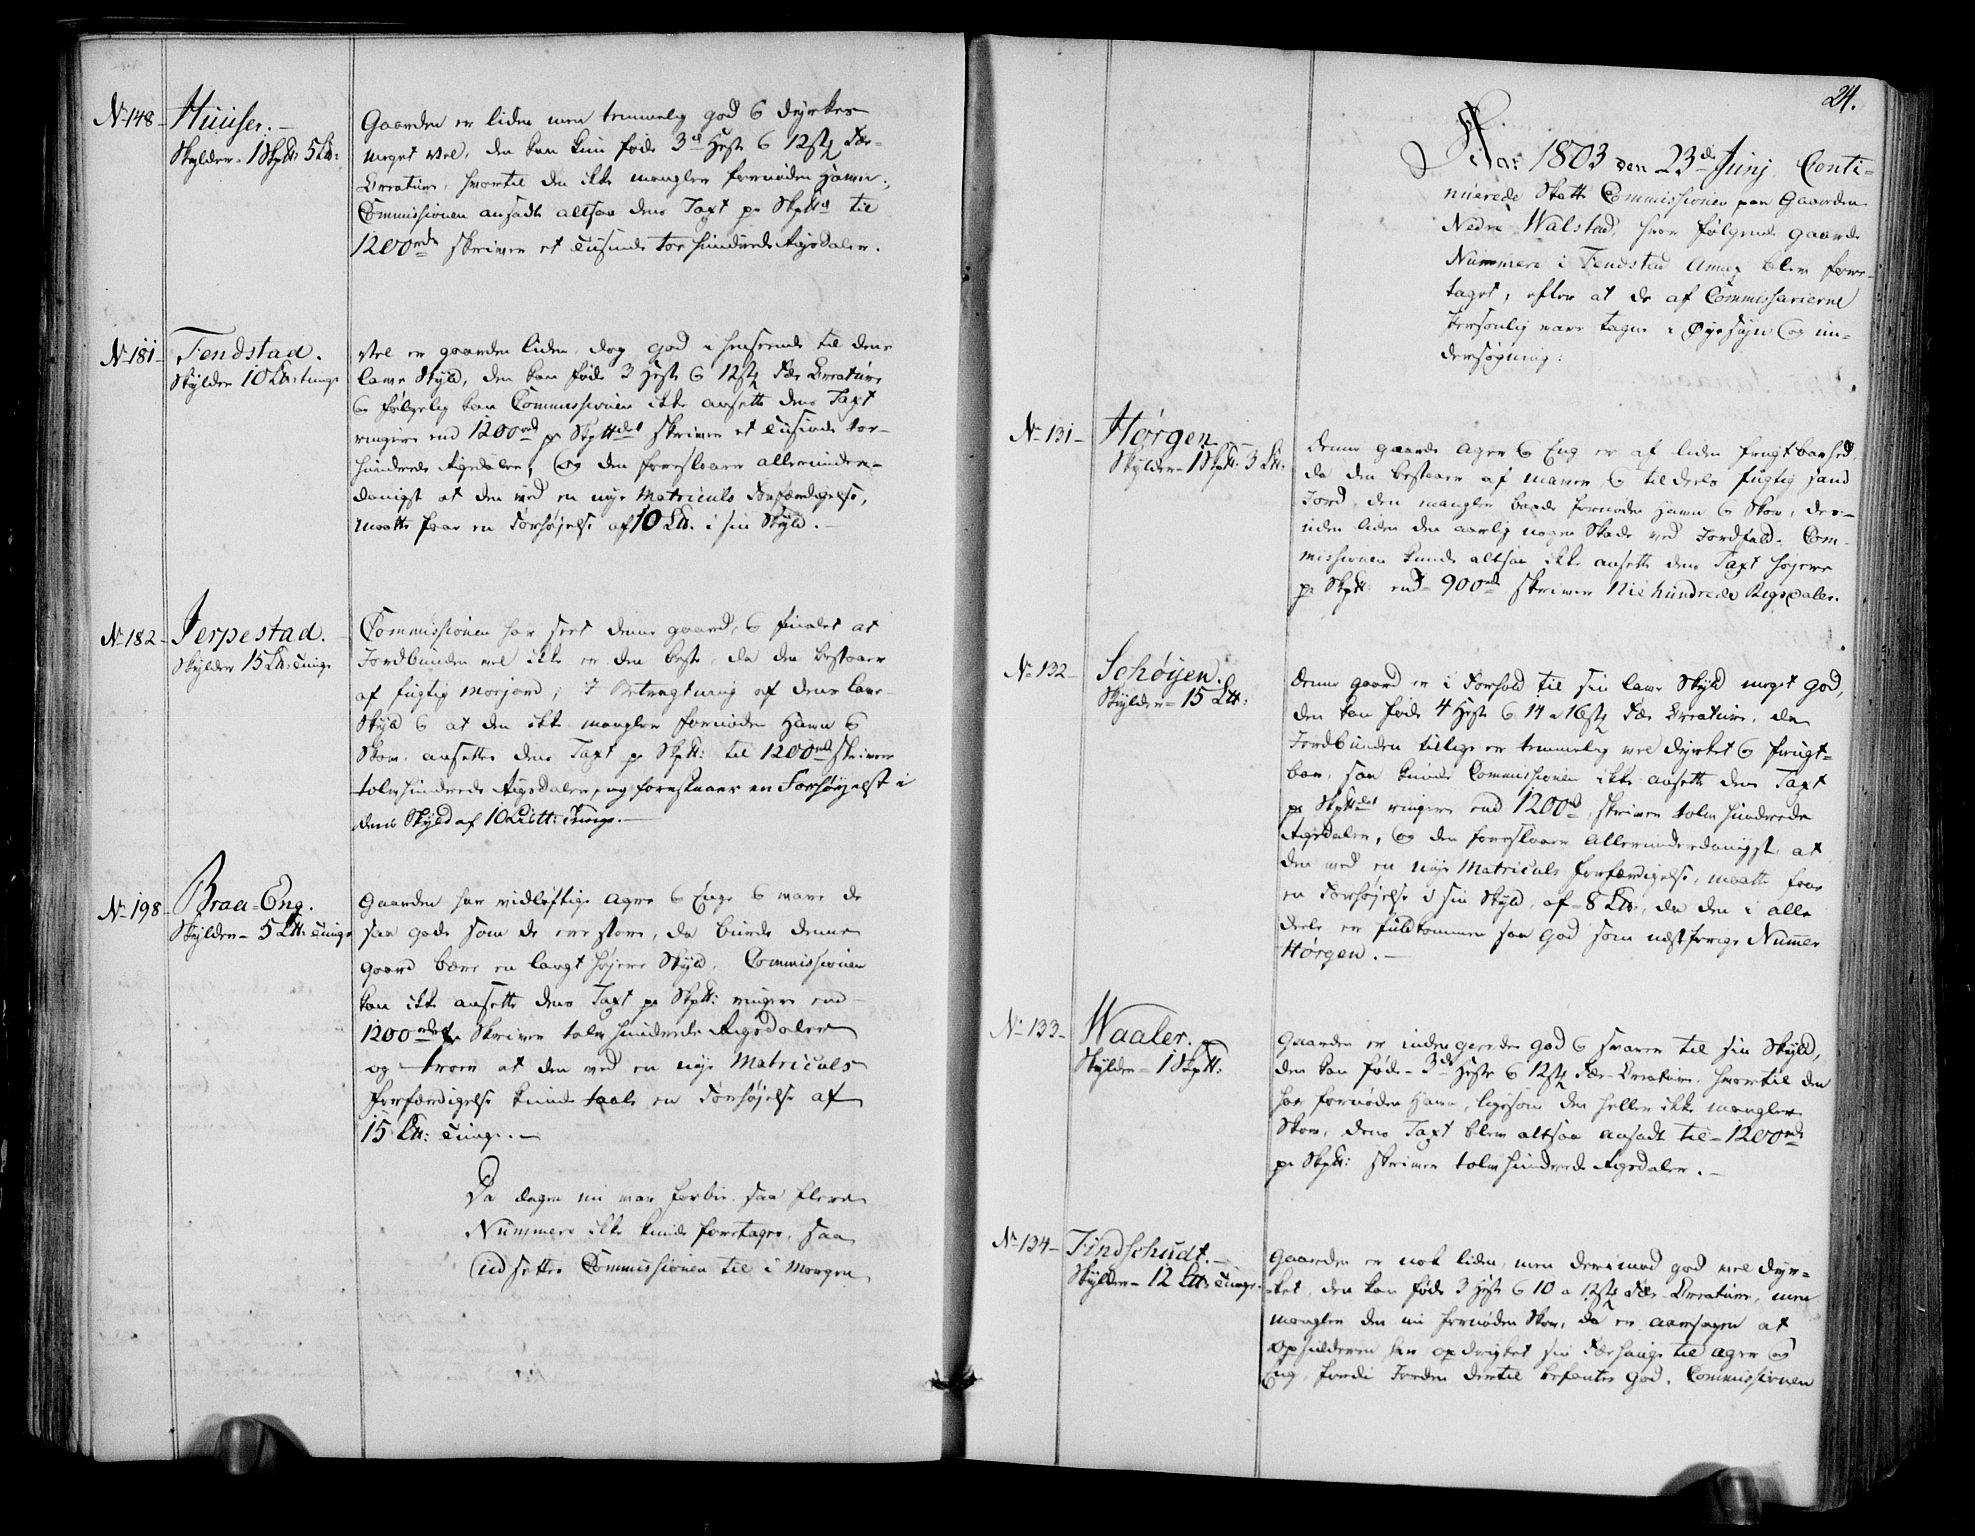 No 148 – Huuser. –
Skylder – 1 Skptt: 5 Ltt:
Gaarden er liden men temmelig god & dyrkes
meget vel, den kan kun føde 3de Heste & 12 stk Fæe-
Creature, hvortil den ikke mangler fornøden Havn.,
Commissionen ansadte altsaa dens Taxt pr Skptt til
1200 rdr skriver et Tusinde toe hundrede Rigsdaler.
No 181 – Fendstad.
Skylder 10 Ltt: tunge
Vel er gaarden liden, dog god i henseende til dens
lave Skyld, den kan føde 3 Heste & 12 stk Fæe Creature
& følgelig kan Commissionen ikke ansette dens Taxt
ringere end 1200 rd pr Skpttdet skriver et Tusinde toe-
hundrede Rigsdaler, og den foreslaaer allerunder-
danigst at den ved en nye Matriculs Forfærdigelse,
maatte faae en Forhøjelse af 10 Ltt. i sin Skyld. –
No 182 – Jerpestad. –
Skylder 15 Ltt: Tunge
Commissionen har seet denne gaard, & fundet at
Jordbunden vel ikke er den beste, da den bestaaer
af fugtig Morjord; I Betragtning af dens lave
Skyld & at den ikke mangler fornøden Havn &
Skov, ansettes dens Taxt pr Skptt: til 1200 rd skriver
tolv hundrede Rigsdaler, og foreslaaer en Forhøyelse i
dens Skyld af 10 Listt: Tunge. –
No 198 – Braa-Eng.
Skylder – 5 Ltt: Tunge
Gaarden har vidløftige Agre & Enge & vare de
saa gode som de ere store, da burde denne
gaard bære en langt højere Skyld, Commissionen
kan ikke ansette dens Taxt pr Skptt: ringere end
1200 rdr skriver tolv hundrede Rigsdaler
og troer at den ved en nye Matriculs
Forfærdigelse kunde taale en Forhøjelse af
15 Ltt: Tunge. –
Da dagen nu var forbie, saa flere
Nummere ikke kunde foretages, saa
udsettes Commissionen til i Morgen
24.
Aar 1803 den 23de Junj Conti-
nuerede Skatte Commissionen paa Gaarden
Nedre Walstad, hvor følgende gaarde
Nummere i Fendstad Annex blev fore-
taget, efter at de af Commissarierne
Personlig vare tagne i Øyesyn og un-
dersøgning:
No 131 – Hørgen –
Skylder – 1 Skptt: 3 Ltt:
Denne gaards Ager & Eng er af liden frugtbarhed,
da den bestaaer af maver & tildeels fugtig sand
Jord, den mangler baade fornøden Havn & Skov, des-
uden lider den aarlig nogen Skade ved Jordfald. Com-
missionen kunde altsaa ikke ansette dens Taxt højere
pr Skptt: end 900 rd skriver Nie hundrede Rigsdaler.
No 132 – Schøyen.
Skylder – 15 Ltt:
Denne gaard er i Forhold til sin lave Skyld meget god,
den kan føde 4 Heste & 14 a 16 stk Fæe Creature, da
Jordbunden tillige er temmelig vel dyrket & frugt-
bar, saa kunde Commissionen ikke ansette dens Taxt
pr Skpttdet ringere end 1200 rd, skriver tolv hundrede
Rigsdaler, og den foreslaaer Allerunderdanigst at
den ved en nye Matriculs forfærdigelse, maatte faae
en Forhøjelse i sin Skyld, af 8 Ltt:, da den i alle
deele er fuldkommen saa god som næstforrige Nummer
Hørgen. –
No 133 – Waaler.
Skylder – 1 Skptt:
Gaarden er inden gierdes god & svarer til sin Skyld,
den kan føde – 3de Heste & 12 stk Fæe-Creature, hvortil den
har fornøden Havn, ligesom den heller ikke mangler
Skov, dens Taxt blev altsaa ansadt til – 1200 rdr
pr Skptt: skriver tolv hundrede Rigsdaler. –
No 134 – Findschudt. –
Skylder – 12 Ltt: Tunge.
Gaarden er nok liden, men derimod god vel dyr-
ket, den kan føde 3 Heste & 10 a 12 stk Fæe-Creature, men
mangler den nu fornøden Skov, da er aarsagen at
Opsidderen har opdrygtet sin Fæehange til ager og
Eng, fordi Jorden dertil befantes god. Commissionen